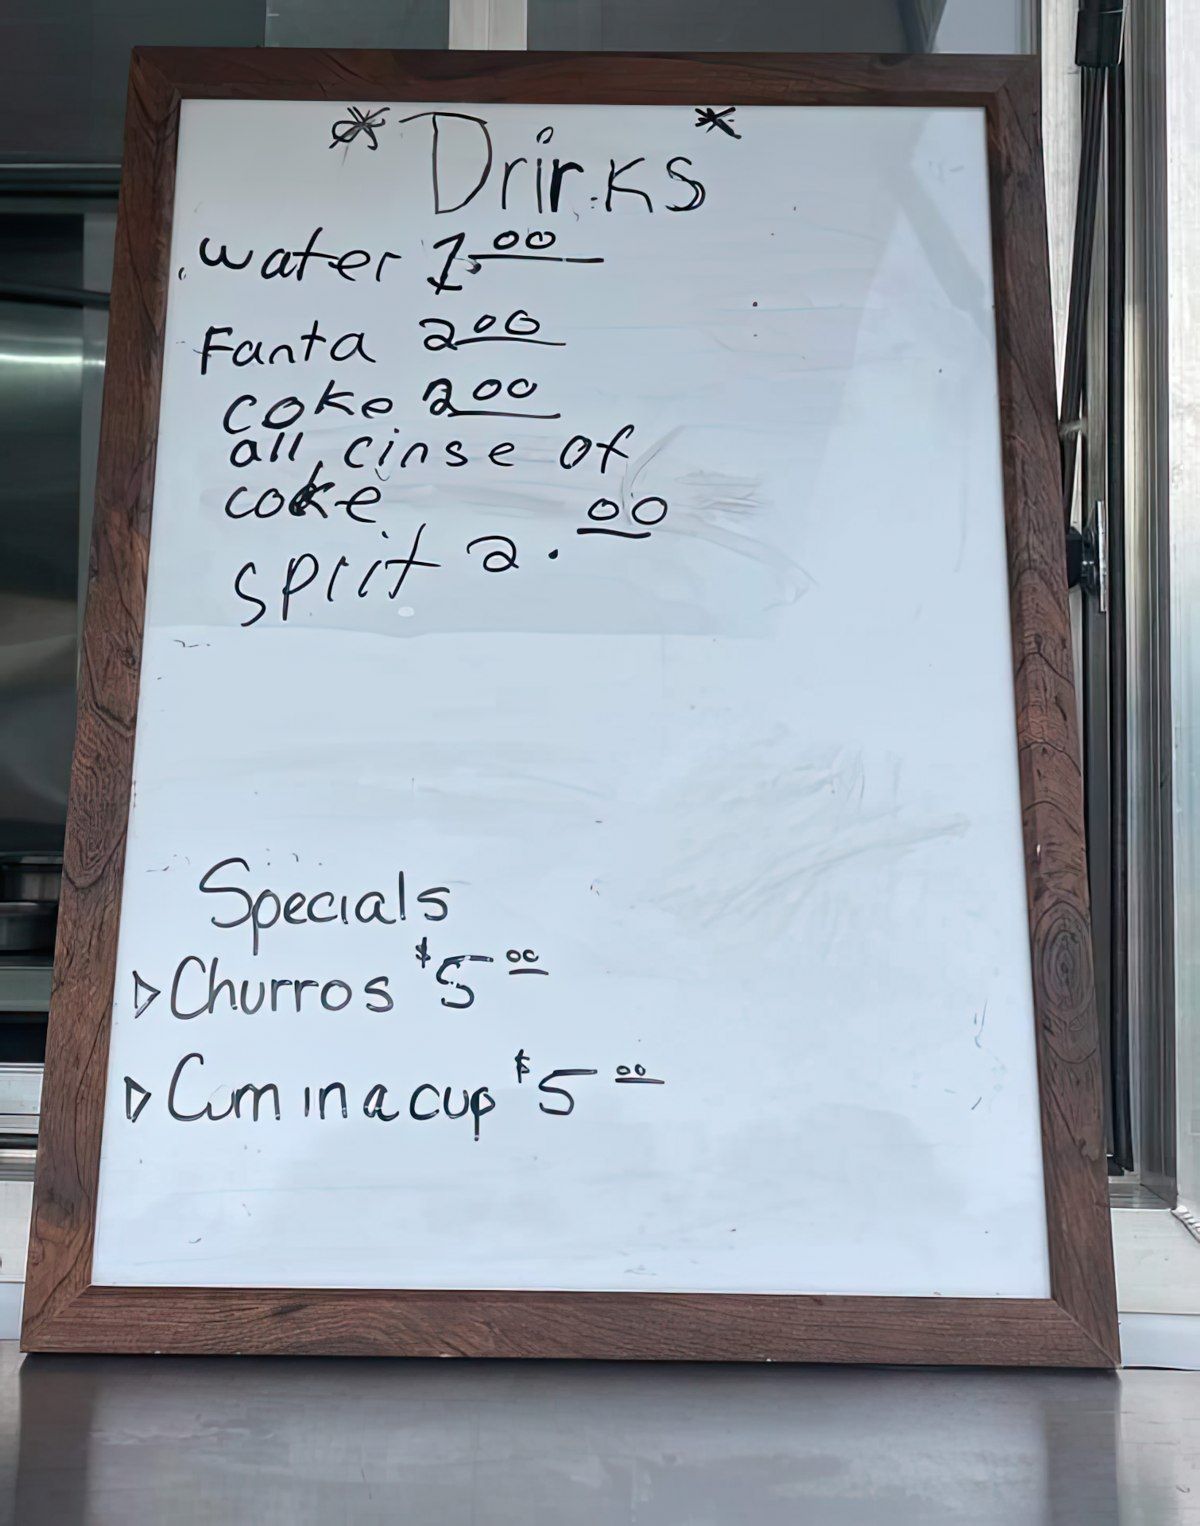 * Drinks *
water 1.00
Fanta 2 00
coke 2 00
all cinse of
coke
spriit 2.00
Specials
Churros $5 00
Cum in a cup $5 00